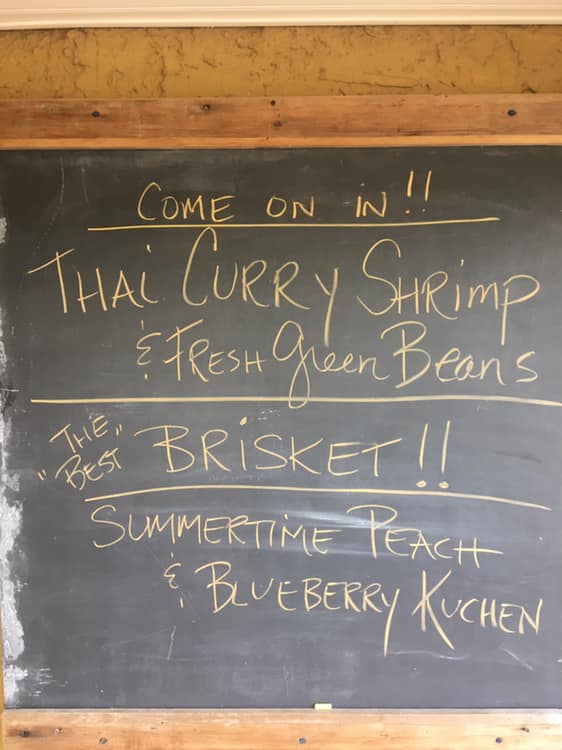 COME ON IN!!
THAi CURRY SHRiMP
& FRESH green Beans
"THE BEST" BRiSKET!!
SUMMERTiME PEACH
& BLUEBERRY KUCHEN